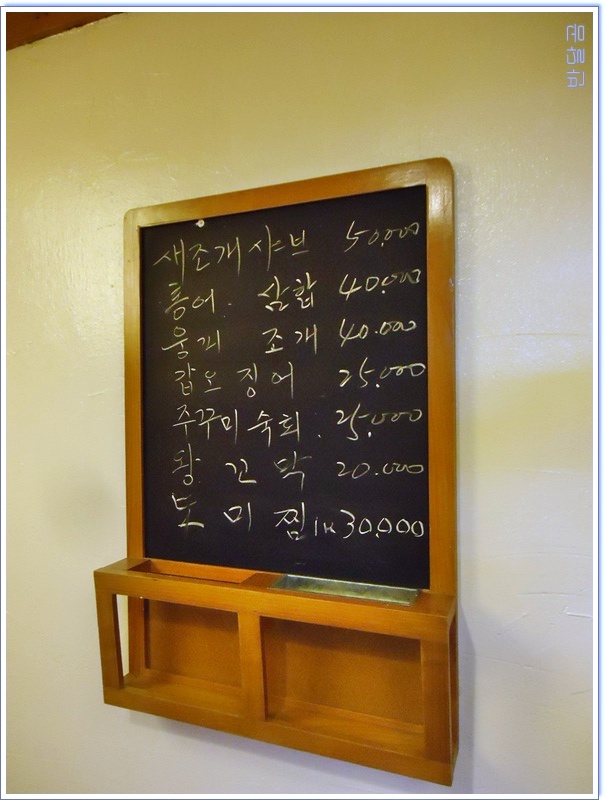 새조개 샤브 50.000
홍어. 삼합 40.000
웅피 조개 40.000
갑오징어 25.000
주꾸미 숙회. 25.000
왕꼬막 20.000
도미찜 1K 30.000